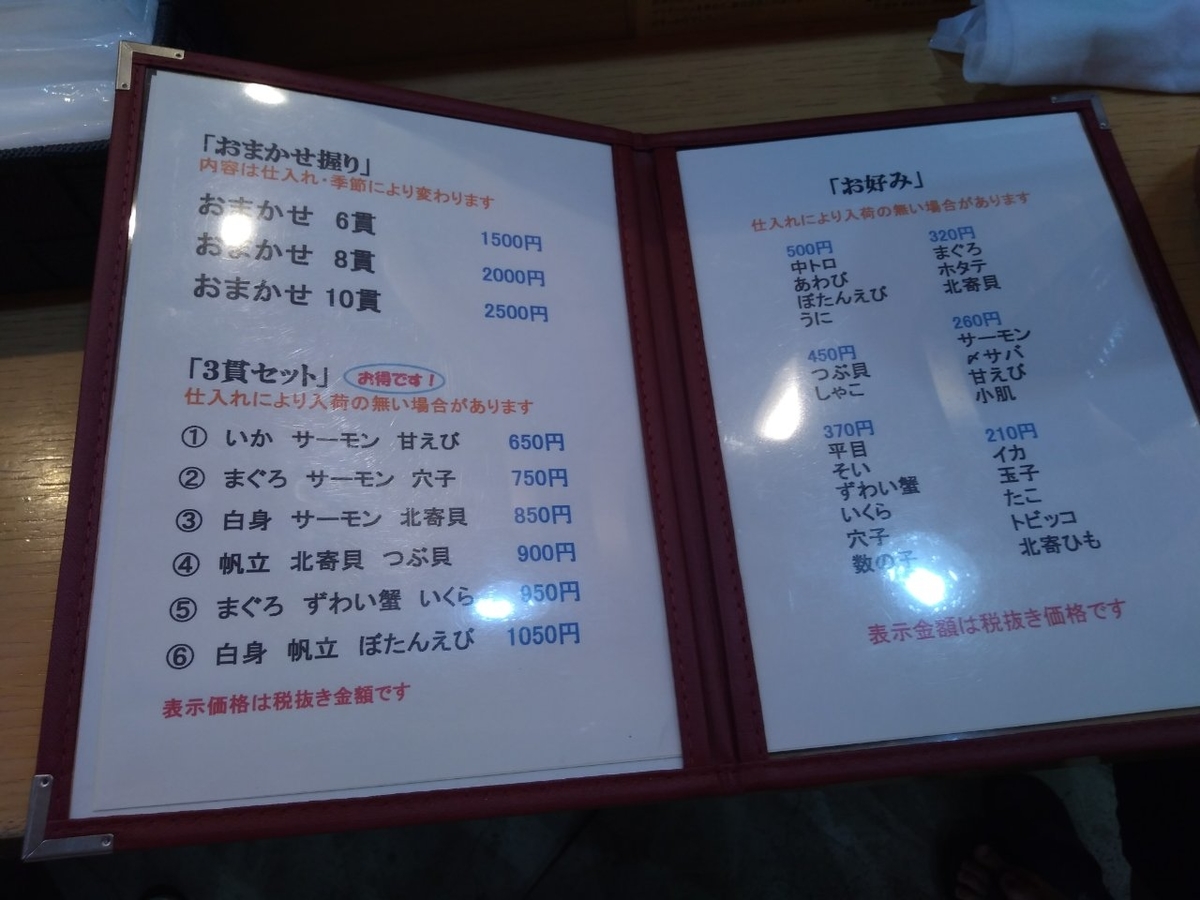 「おまかせ握り」
内容は仕入れ・季節により変わります
おまかせ 6貫 1500円
おまかせ 8貫 2000円
おまかせ 10貫 2500円
「3貫セット」 お得です!
仕入れにより入荷の無い場合があります
① いか サーモン 甘えび 650円
② まぐろ サーモン 穴子 750円
③ 白身 サーモン 北寄貝 850円
④ 帆立 北寄貝 つぶ貝 900円
⑤ まぐろ ずわい蟹 いくら 950円
⑥ 白身 帆立 ぼたんえび 1050円
表示価格は税抜き金額です
「お好み」
仕入れにより入荷の無い場合があります
500円
中トロ
あわび
ぼたんえび
うに
450円
つぶ貝
しゃこ
370円
平目
そい
ずわい蟹
いくら
穴子
数の子
320円
まぐろ
ホタテ
北寄貝
260円
サーモン
〆サバ
甘えび
小肌
210円
イカ
玉子
たこ
トビッコ
北寄ひも
表示金額は税抜き価格です